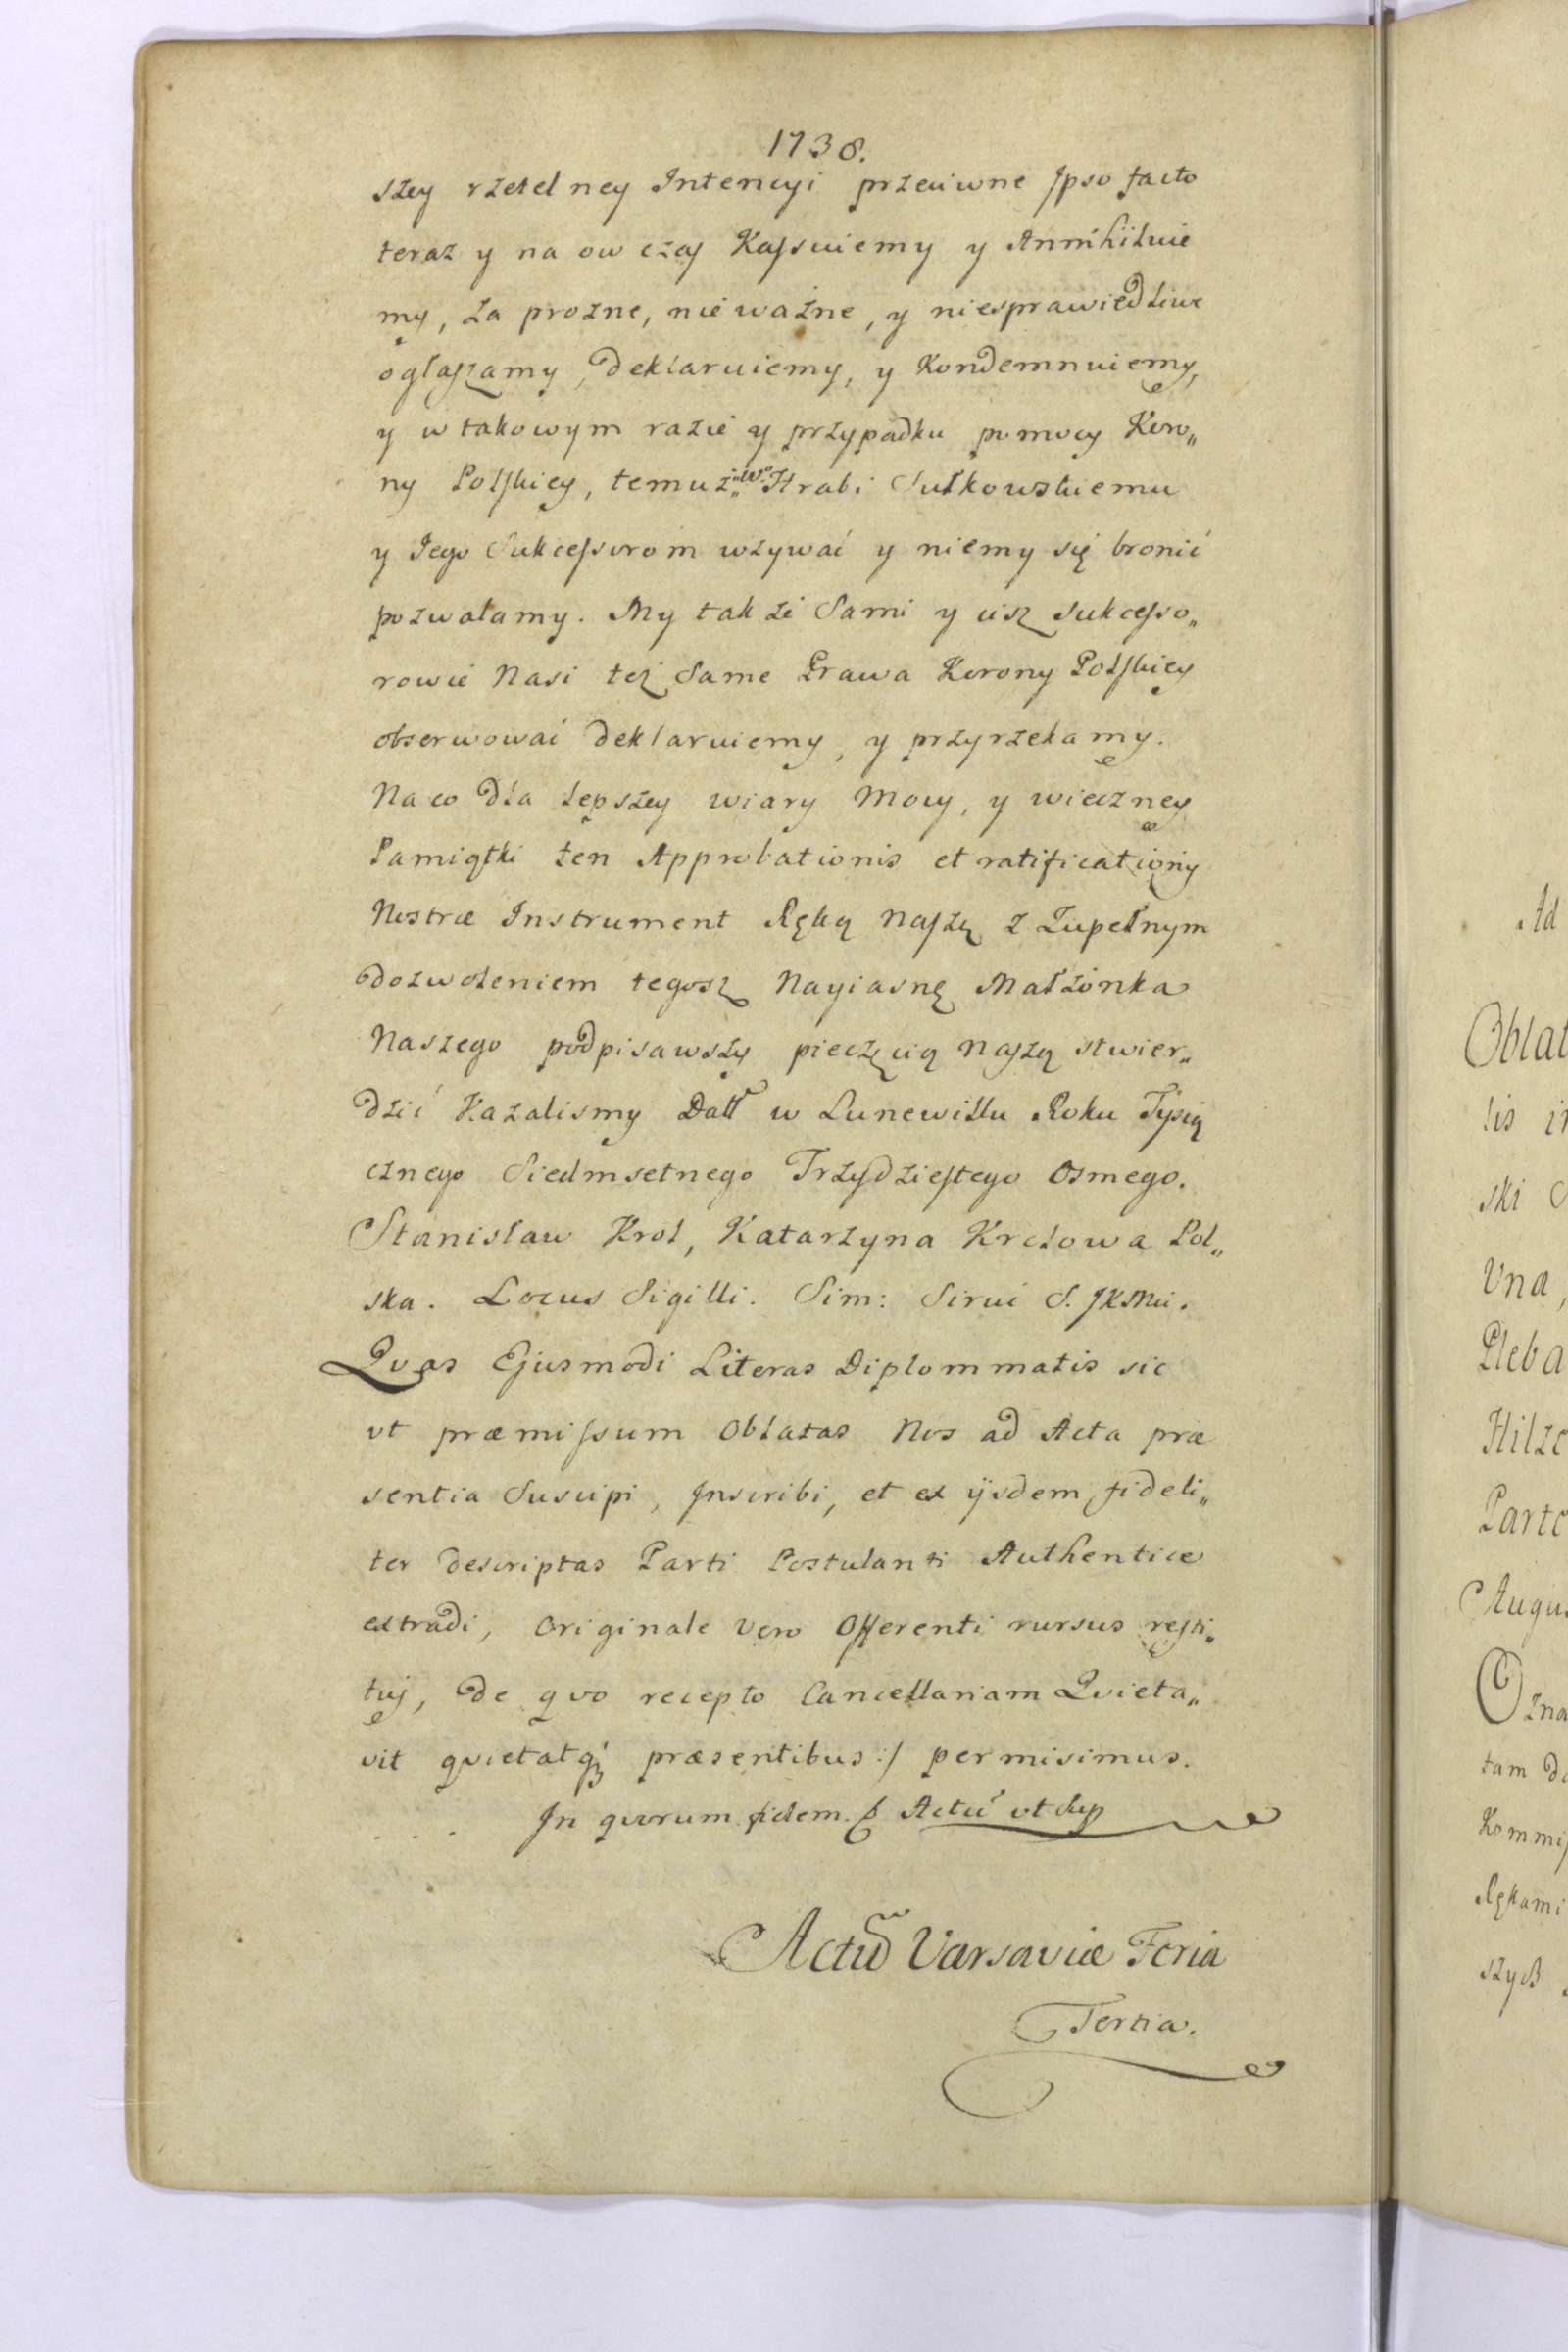 1738.
szey rzetelney Intencyi przeciwne Ipso facto
teraz y na ow czas Kassuiemy y Annihiluie
my, za prozne, nieważne, y niesprawiedliwe
ogłaszamy, deklaruiemy, y Kondemnuiemy,
y w takowym razie y przypadku pomocy Koro„
ny Polskiey, temuż„ W° Hrabi Sułkowskiemu
y Jego Sukcessorom wzywać y niemy się bronić
pozwalamy. My także Sami y cisz sukcesso„
rowie Nasi też Same Prawa Korony Polskiey
obserwować deklaruiemy, y przyrzekamy.
Na co dla lepszey wiary Mocy, y wieczney
Pamiątki ten Approbationis et ratificationis
Nostræ Instrument Ręką naszą z Zupełnym
dozwoleniem tegosz Nayiasnę Małżonka
Naszego podpisawszy pieczęcią naszą stwier„
dzić Kazalismy Datt w Lunewillu Roku Tysią
cznego Siedmsetnego Trzydziestego Osmego.
Stanisław Krol, Katarzyna Krolowa Pol„
ska. Locus Sigilli. Sim: Sirui S. JKMci.
Qvas Ejusmodi Literas Diplommatis sic
ut præmissum Oblatas Nos ad Acta præ
sentia Suscipi, Inscribi, et ex ijsdem fideli„
ter descriptas Parti Postulanti Authentice
extradi, Originale vero Offerenti rursus resti„
tuj, de qvo recepto Cancellariam Qvieta„
vit qvietatq; præsentibus :/ permisimus.
In qvorum fidem. Actu ut sup
Actũ Varsaviæ Feria
Tertia.
Ad
Oblat
lis in
ski
Una,
Pleba
Hilze
Parte
Augus
Ozna
tam do
Kommis
Rękami
szych